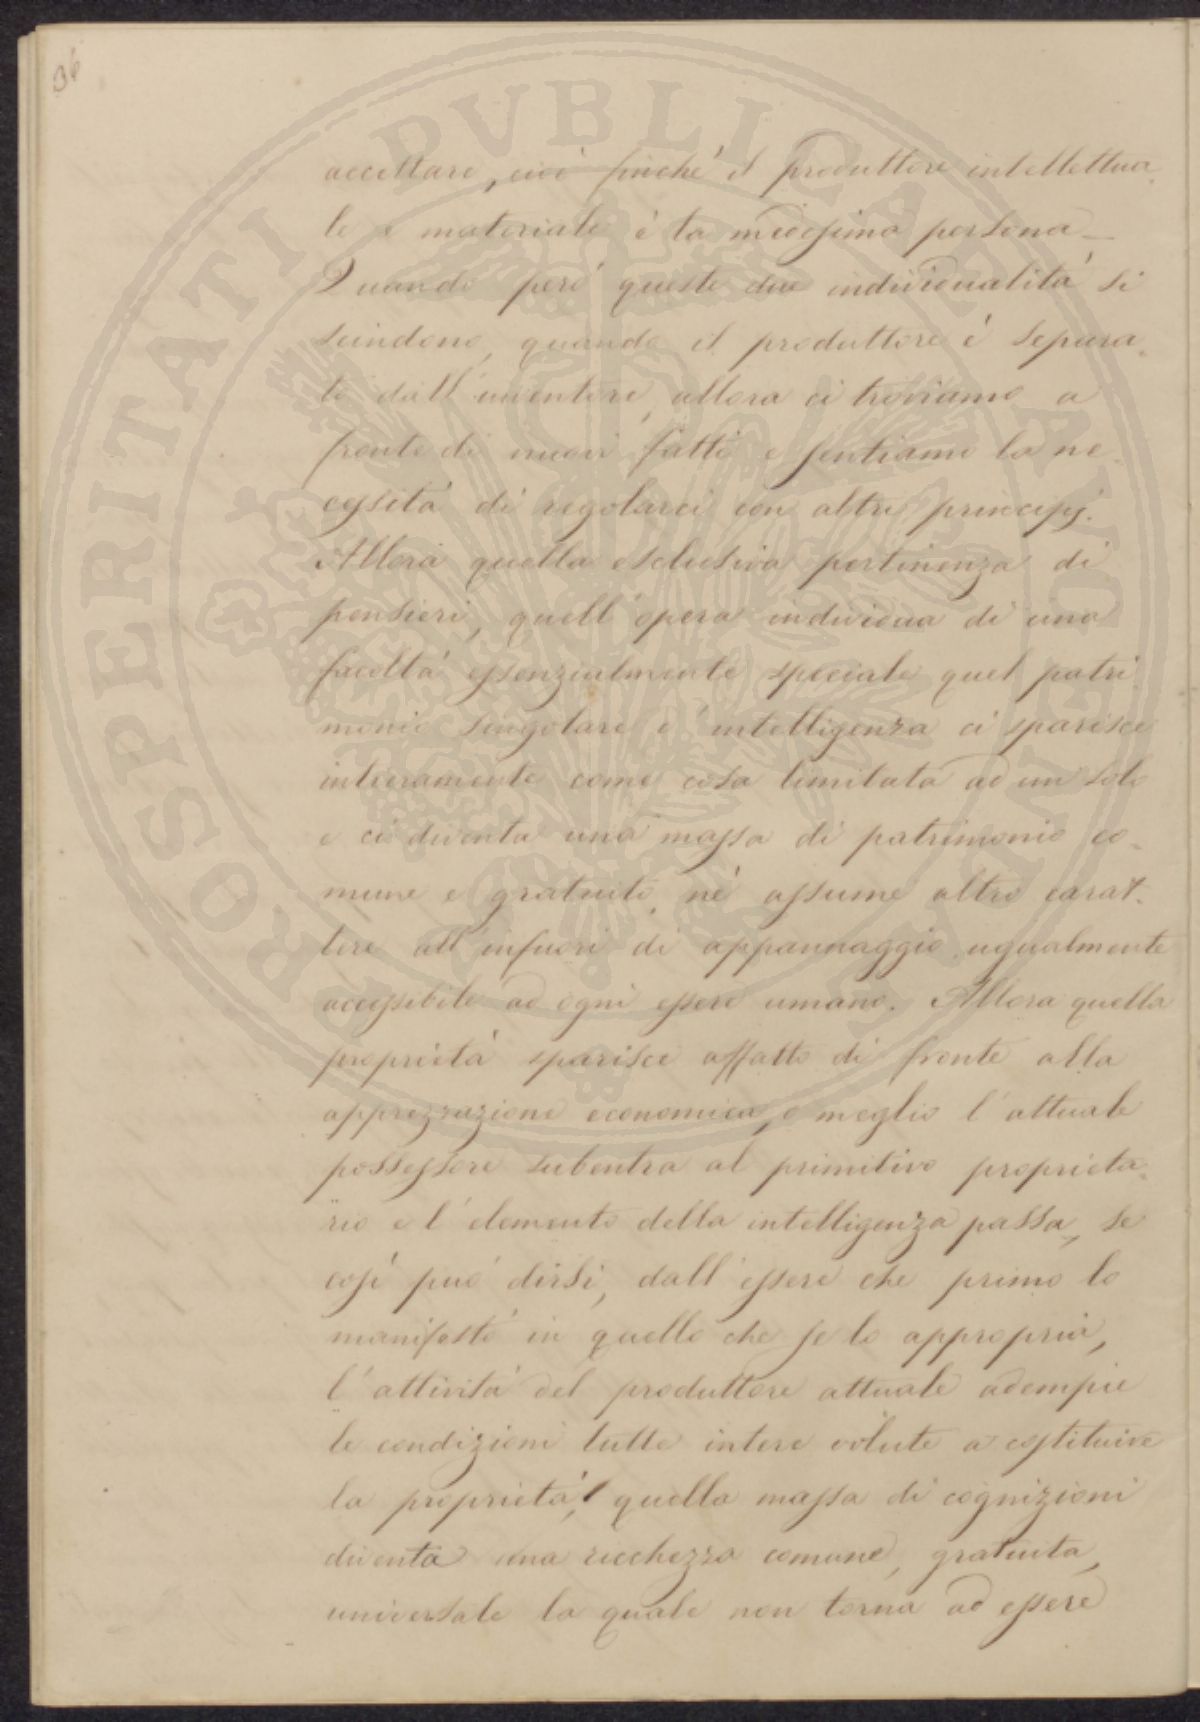 36
accettare, cioè finchè il produttore intellettua-
le e materiale è la medesima persona_
Quando però queste due individualità si
scindono, quando il produttore è separa-
to dall'inventore, allora ci troviamo a
fronte di nuovi fatti e sentiamo la ne-
cessità di regolarci con altri principj.
Allora quella esclusiva pertinenza di
pensieri, quell'opera individua di una
facoltà essenzialmente speciale quel patri-
monio singolare d'intelligenza ci sparisce
intieramente come cosa limitata ad un solo
e ciò diventa una massa di patrimonio co-
mune e gratuito, nè assume altro carat-
tere all'infuori di appannaggio ugualmente
accessibile ad ogni essere umano. Allora quella
proprietà sparisce affatto di fronte alla
apprezzazione economica, o meglio l'attuale
possessore subentra al primitivo proprieta-
rio e l'elemento della intelligenza passa, se
così può dirsi, dall'essere che primo lo
manifestò in quello che se lo appropria,
l'attività del produttore attuale adempie
le condizioni tutte intere volute a costituire
la proprietà, quella massa di cognizioni
diventa una ricchezza comune, gratuita,
universale la quale non torna ad essere
PROSPERITATI PVBLICAE AVGENDAE